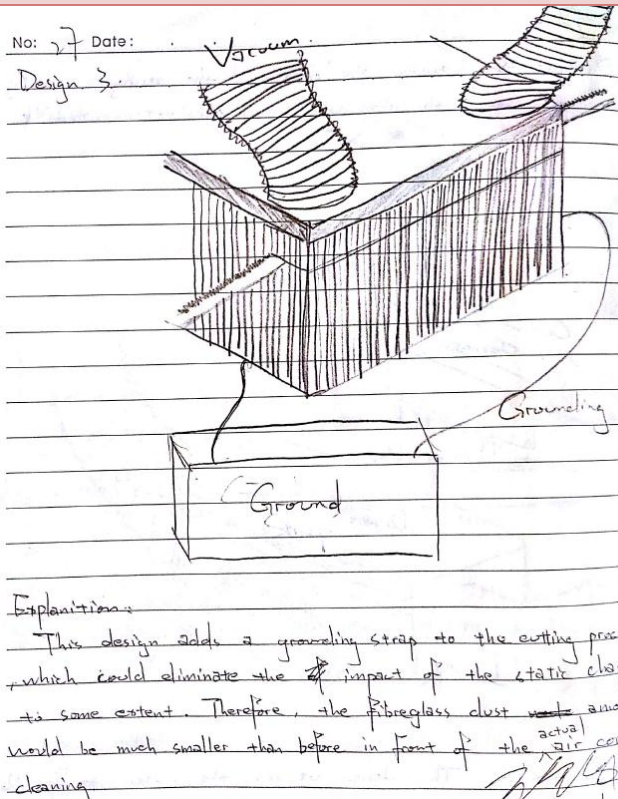 No: 27 Date:
Vacuum
Design 3.
Grounding
Ground
Explanition:
This design adds a grounding strap to the cutting
, which could eliminate the impact of the static
to some extent. Therefore, the fibreglass dust
would be much smaller than before in front of the actual air
cleaning